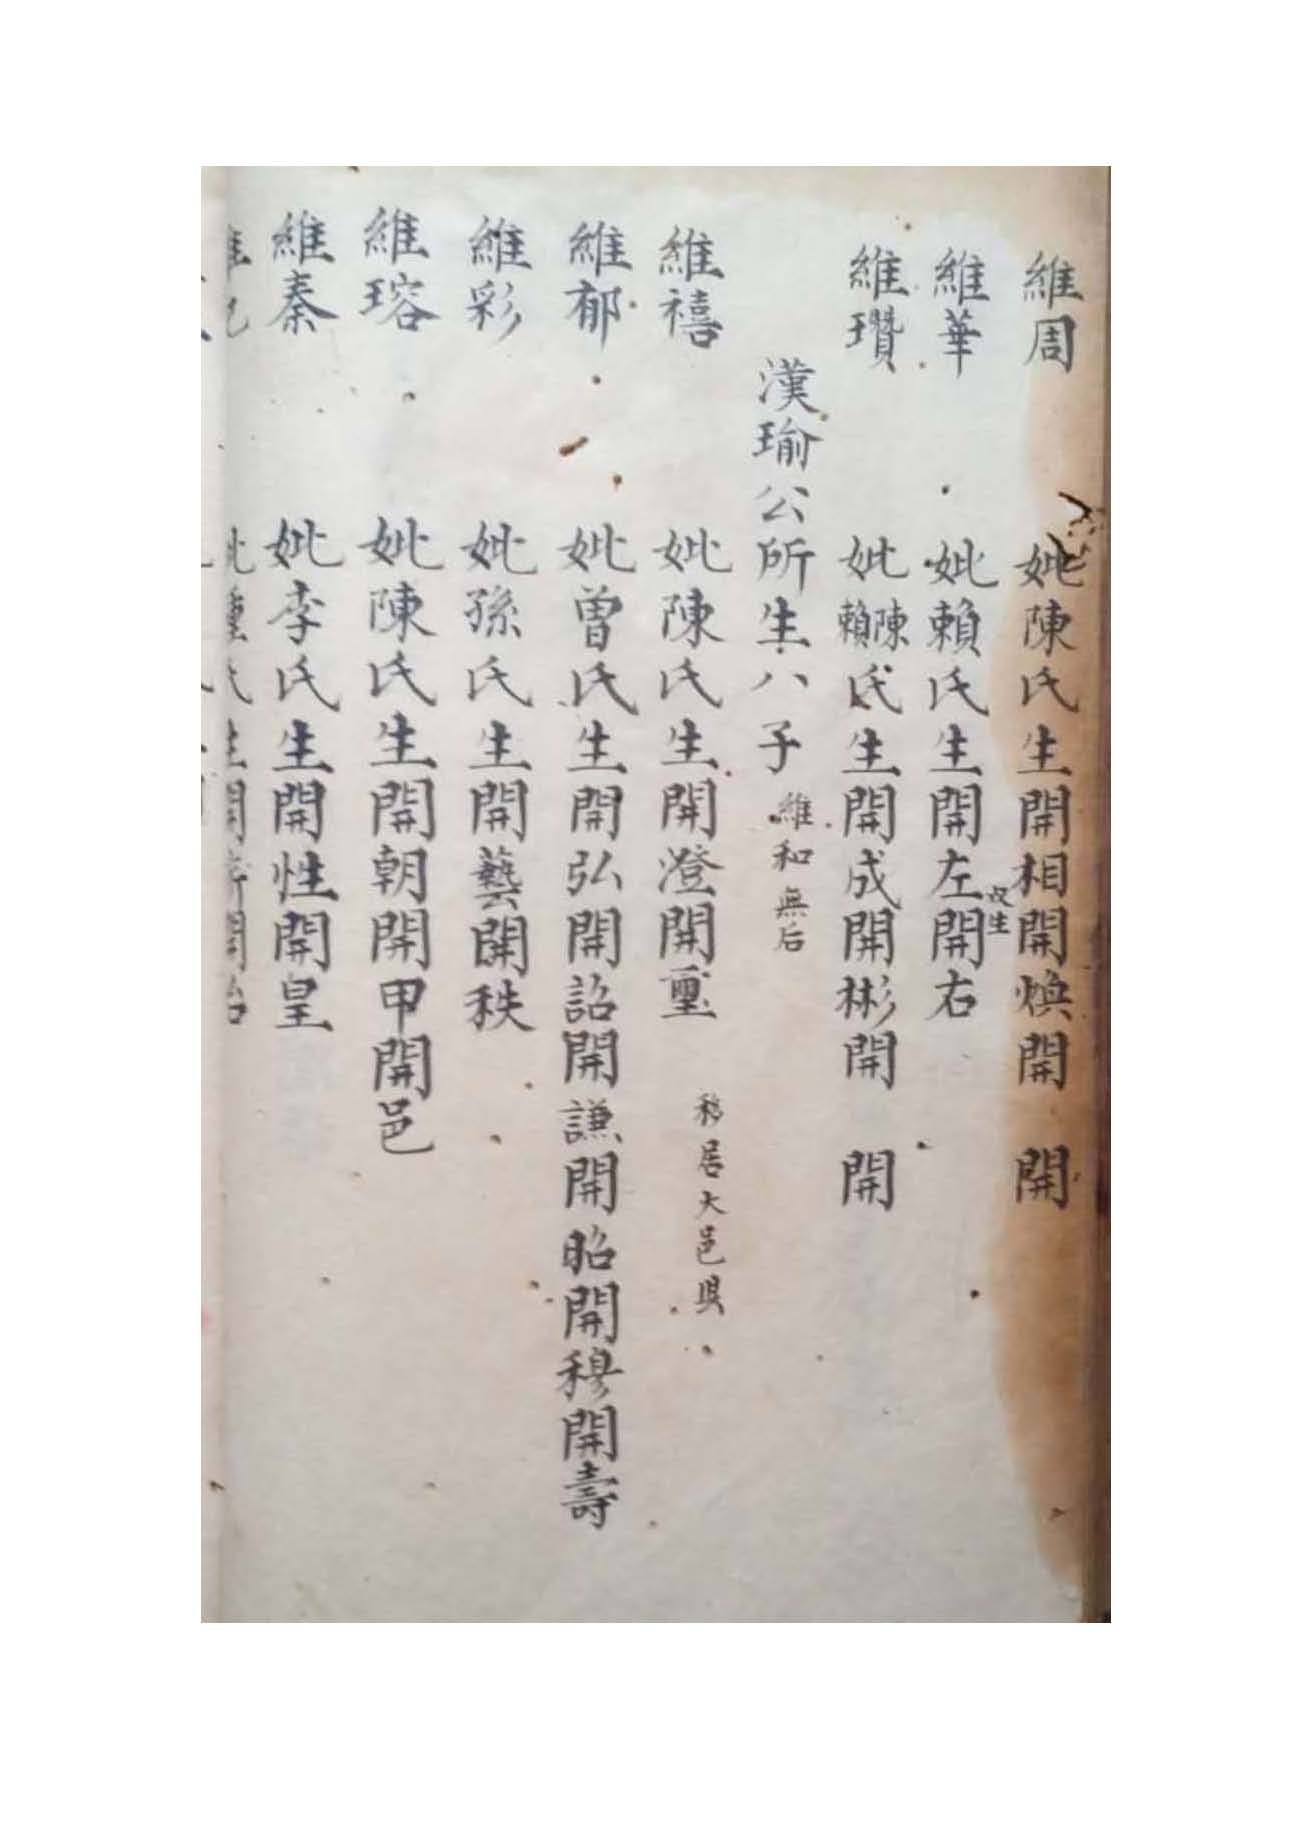 維周 妣陳氏生開相開煥開 開
維華 妣賴氏生開左開右
双生
維瓚 妣陳賴氏生開成開彬開 開
漢瑜公所生八子 維和無后
維禧 妣陳氏生開澄開璽 移居大邑県
維郁 妣曾氏生開弘開詔開謙開昭開穆開壽
維彩 妣孫氏生開藝開秩
維瑢 妣陳氏生開朝開甲開邑
維秦 妣李氏生開性開皇